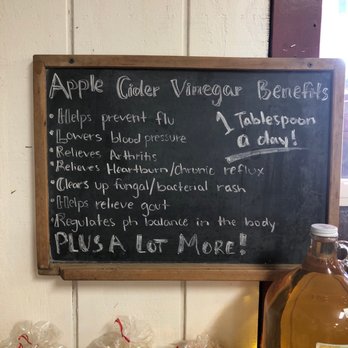 Apple Cider Vinegar Benefits
• Helps prevent flu
• Lowers blood pressure
• Relieves Arthritis
• Relieves Heartburn/Chronic reflux
• Clears up fungal/bacterial rash
• Helps relieve gout
• Regulates ph balance in the body
PLUS A LOT MORE!
1 Tablespoon
a day!